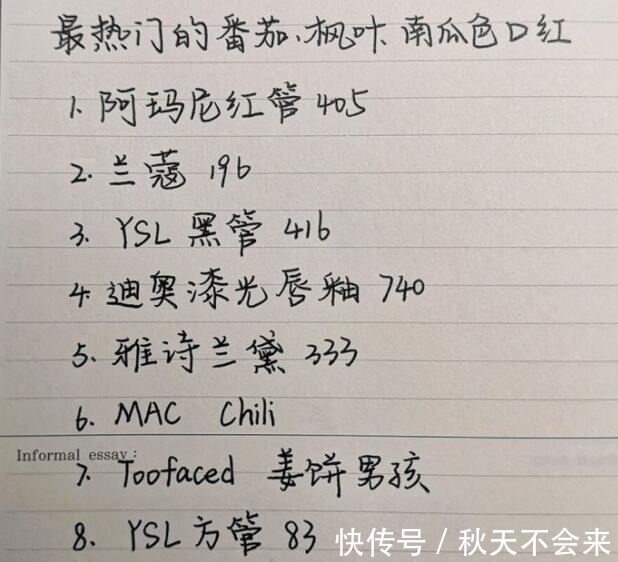 最热门的番茄、枫叶、南瓜色口红
1. 阿玛尼红管 405
2. 兰蔻 196
3. YSL 黑管 416
4. 迪奥漆光唇釉 740
5. 雅诗兰黛 333
6. MAC Chili
Informal essay :
7. Toofaced 姜饼男孩
8. YSL 方管 83
快传号 / 秋天不会来